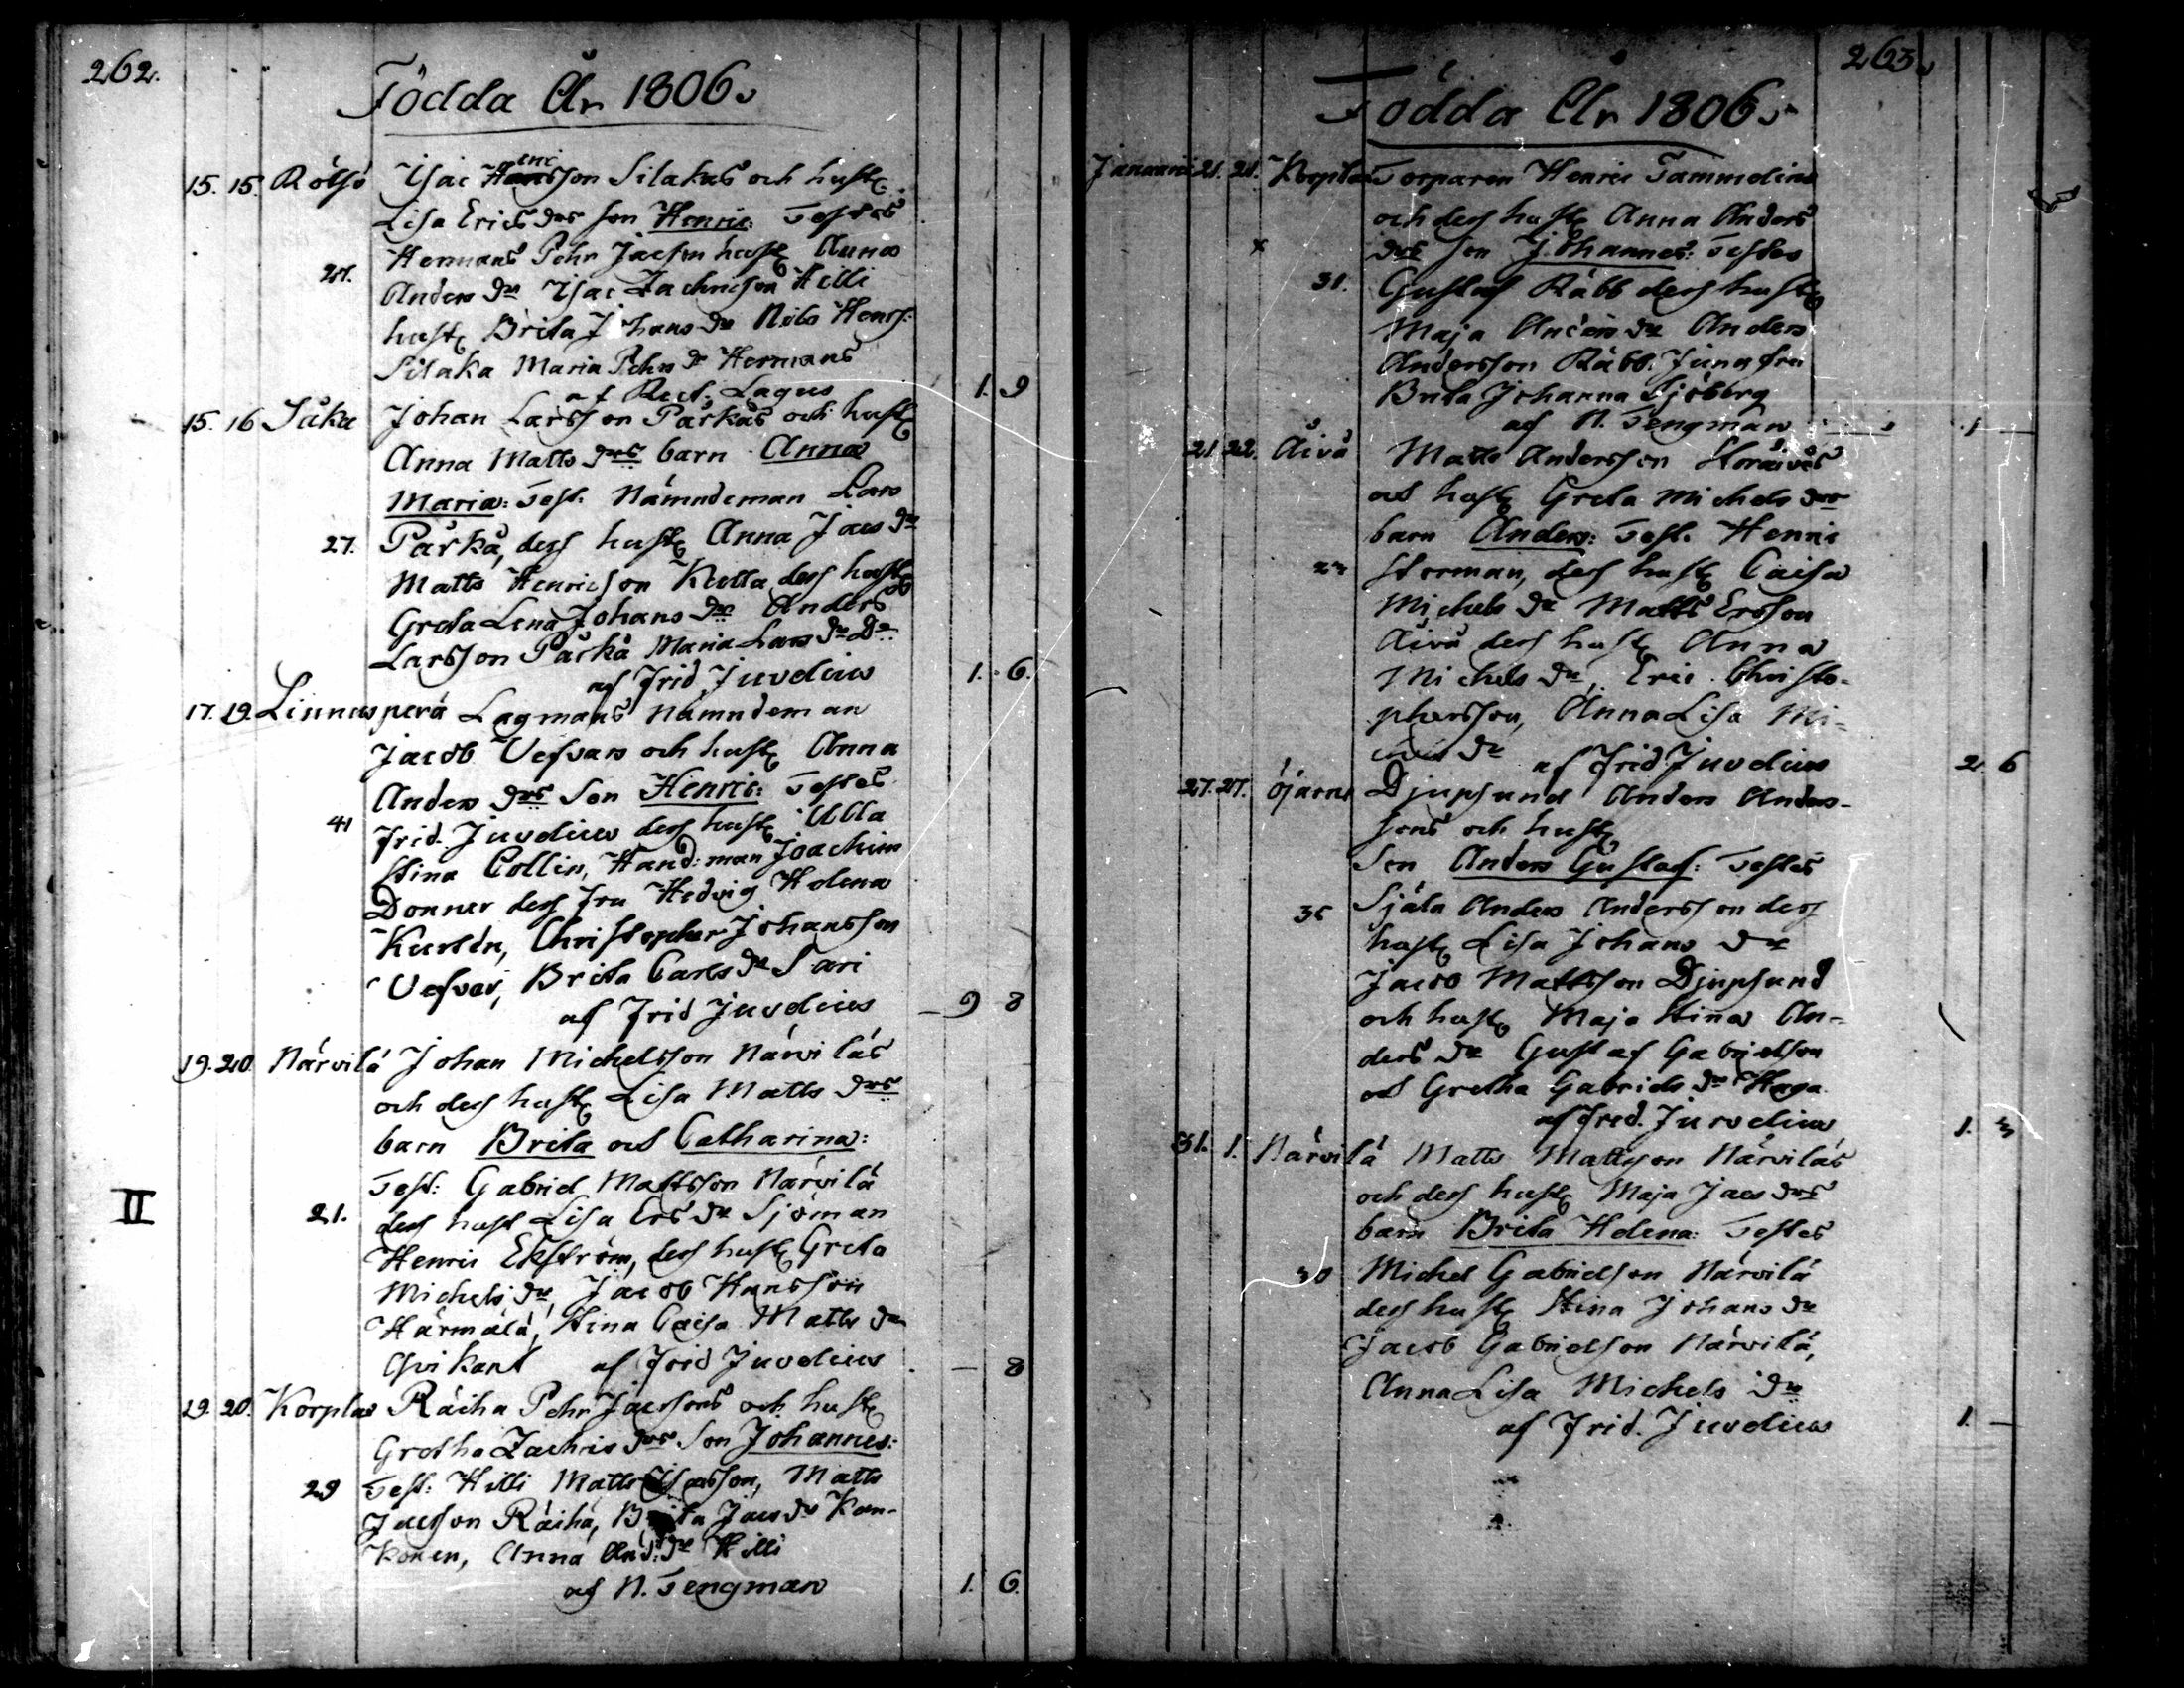 262.
Födda År 1806.
15. 15. Rötsö Isac Hansson Silakas och hust
enric
Lisa Erics drs son Henric: Testes
Hermans Pehr Jacson hust Anna
27. Anders dr Isac Zachrisson Hilli
hust Brita Johans dr Nils Henrs:
Silaka Maria Pehrs dr Hermans
af Rect: Lagus 1. 9
15. 16 Såka Johan Larsson Pärkäs och hust
Anna Matts drs barn Anna
Maria: Test. Nämndeman Lars
27. Pärkä, dess hust Anna Jacs dr
Matts Henricson Kulla dess hust
Greta Lena Johans dr Anders
Larsson Pärkä Maria Lars dr Do
af Frid Juvelius 1. 6.
17. 19. Linnusperä Lagmans Nämndeman
Jacob Vefvars och hust Anna
Anders drs Son Henric: Testes
41 Frid. Juvelius dess hust Ulla
Stina Collin, Hand: man Joachim
Donner dess Fru Hedvig Helena
Kurtén, Christopher Johansson
Vefvar, Brita Carls dr Sari
af Frid Juvelius — 9 8
19. 20. Närvilä Johan Michelsson Närviläs
och dess hust Lisa Matts drs
barn Brita och Catharina:
Test: Gabriel Mattsson Närvilä
II
21. dess hust Lisa Ers dr Sjöman
Henric Ekström, dess hust Greta
Michels dr, Jacob Hansson
Härmälä, Stina Caisa Matts dr
Qvikant af Frid Juvelius — 8
19. 20. Korplax Räihä Pehr Jacsons och hust
Gretha Zachris drs Son Johannes:
29 Test: Hilli Matts Isacsson, Matts
Jacson Räihä, Brita Jacs dr Kan-
konen, Anna And: dr Hilli
af N. Tengman 1. 6.
263.
Födda År 1806.
Januarii 21. 21. Korplax Torparen Henric Tammelins
och dess hust Anna Anders
x drs son Johannes: Testes
31. Gustaf Räbb dess hust
Maja Anders dr Anders
Andersson Räbb. Jungfru
Brita Johanna Sjöberg
af N. Tengman 1 —
21 22. Åivo Matts Andersson Storåivos
och hust Greta Michels drs
barn Anders: Test. Henric
Storman, dess hust Caisa
Michels dr Matts Ersson
Åivo dess hust Anna
Michels dr, Eric Christo-
phersson, Anna Lisa Mi-
chels dr af Frid Juvelius 2 6
27. 27. Öjarne Djupsund Anders Anders-
sons och hust
Son Anders Gustaf: Testes
Själa Anders Andersson dess
hust Lisa Johans dr
Jacob Mattsson Djupsund
och hust Maja Stina An-
ders dr Gustaf Gabrielson
och Gretha Gabriels dr Haga
af Frid. Juvelius 1. 3
31. 1. Närvilä Matts Mattsson Närviläs
och dess hust Maja Jacs drs
barn Brita Helena: Testes
30 Michel Gabrielson Närvilä
dess hust Stina Johans dr
Jacob Gabrielson Närvilä,
Anna Lisa Michels dr
af Frid. Juvelius 1. —